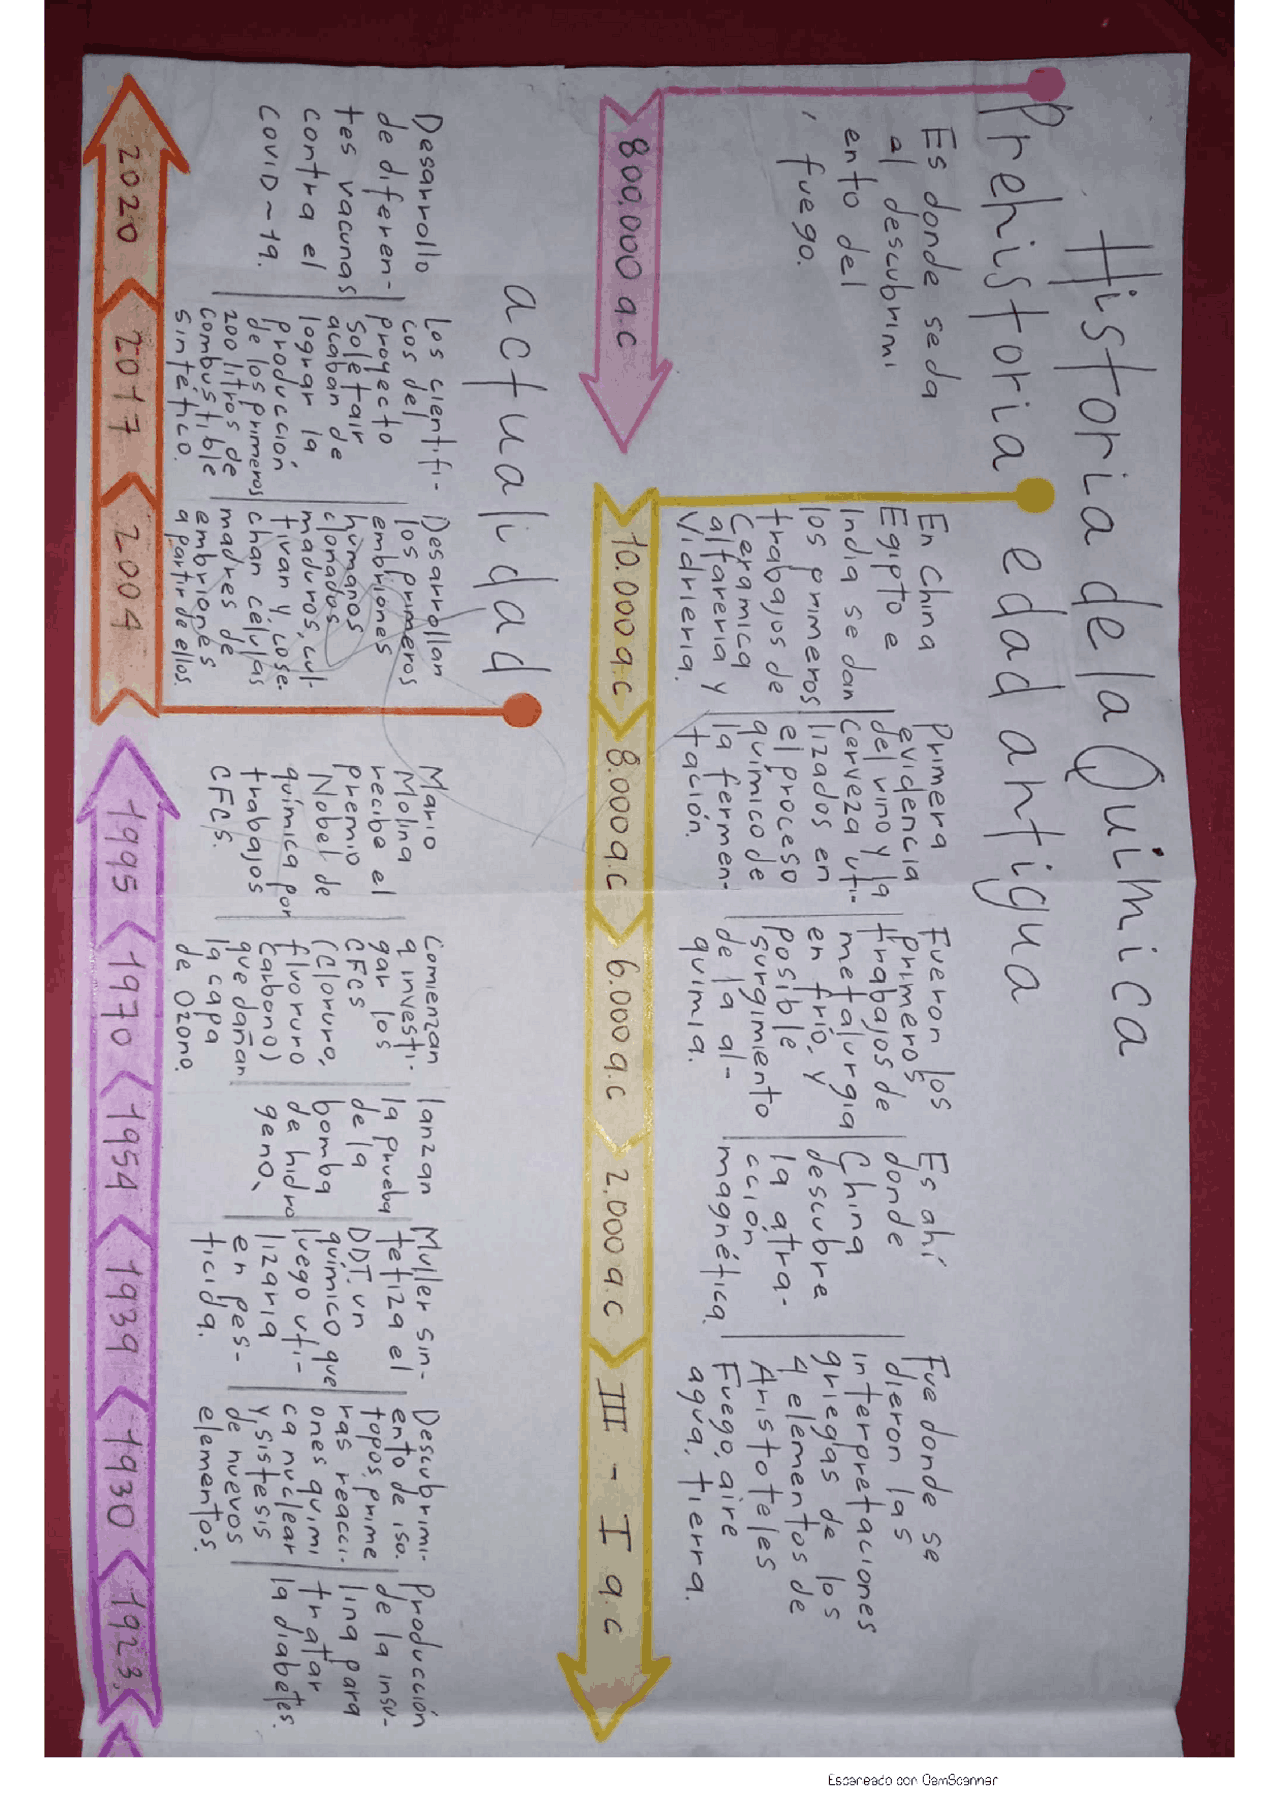 Historia de la Quimica
Prehistoria
Es donde se da
el descubrimi
ento del
fuego.
800.000 a.c
edad antigua
En China
Egipto e
India se dan
los primeros
trabajos de
Ceramica
alfareria y
Vidrieria.
10.000 a.c
Primera
evidencia
del vino y la
cerveza uti-
lizados en
el proceso
químico de
la fermen-
tación.
8.000 a.c
Fueron los
primeros
trabajos de
metalurgia
en frío, y
posible
surgimiento
de la al-
quimia.
6.000 a.c
Es ahí
donde
China
descubre
la atra-
cción
magnética.
2.000 a.c
Fue donde se
dieron las
interpretaciones
griegas de los
4 elementos de
Aristoteles
Fuego, aire
agua, tierra.
III - I a.c
actualidad
Desarrollo
de diferen-
tes vacunas
contra el
COVID-19.
2020
Los cientifi-
cos del
proyecto
soletair
acaban de
lograr la
producción
de los primeros
200 litros de
combustible
sintético.
2017
Desarrollan
los primeros
embriones
humanos
clonados
maduros, cul-
tivan y cose-
chan células
madres de
embriones
a partir de ellos.
2004
Mario
Molina
recibe el
premio
Nobel de
química por
trabajos
CFCs.
1995
Comienzan
a investi-
gar los
CFCs
(Cloruro,
fluoruro
Carbono)
que dañan
la capa
de Ozono.
1970
lanzan
la prueba
de la
bomba
de hidro
geno.
1954
Muller sin-
tetiza el
DDT. un
químico que
luego uti-
lizaria
en pes-
ticida.
1939
Descubrimi-
ento de iso.
topos, prime
ras reacci-
ones quimi
ca nuclear
y, sistesis
de nuevos
elementos.
1930
Producción
de la insu-
lina para
tratar
la diabetes.
1923.
Escaneado con CamScanner